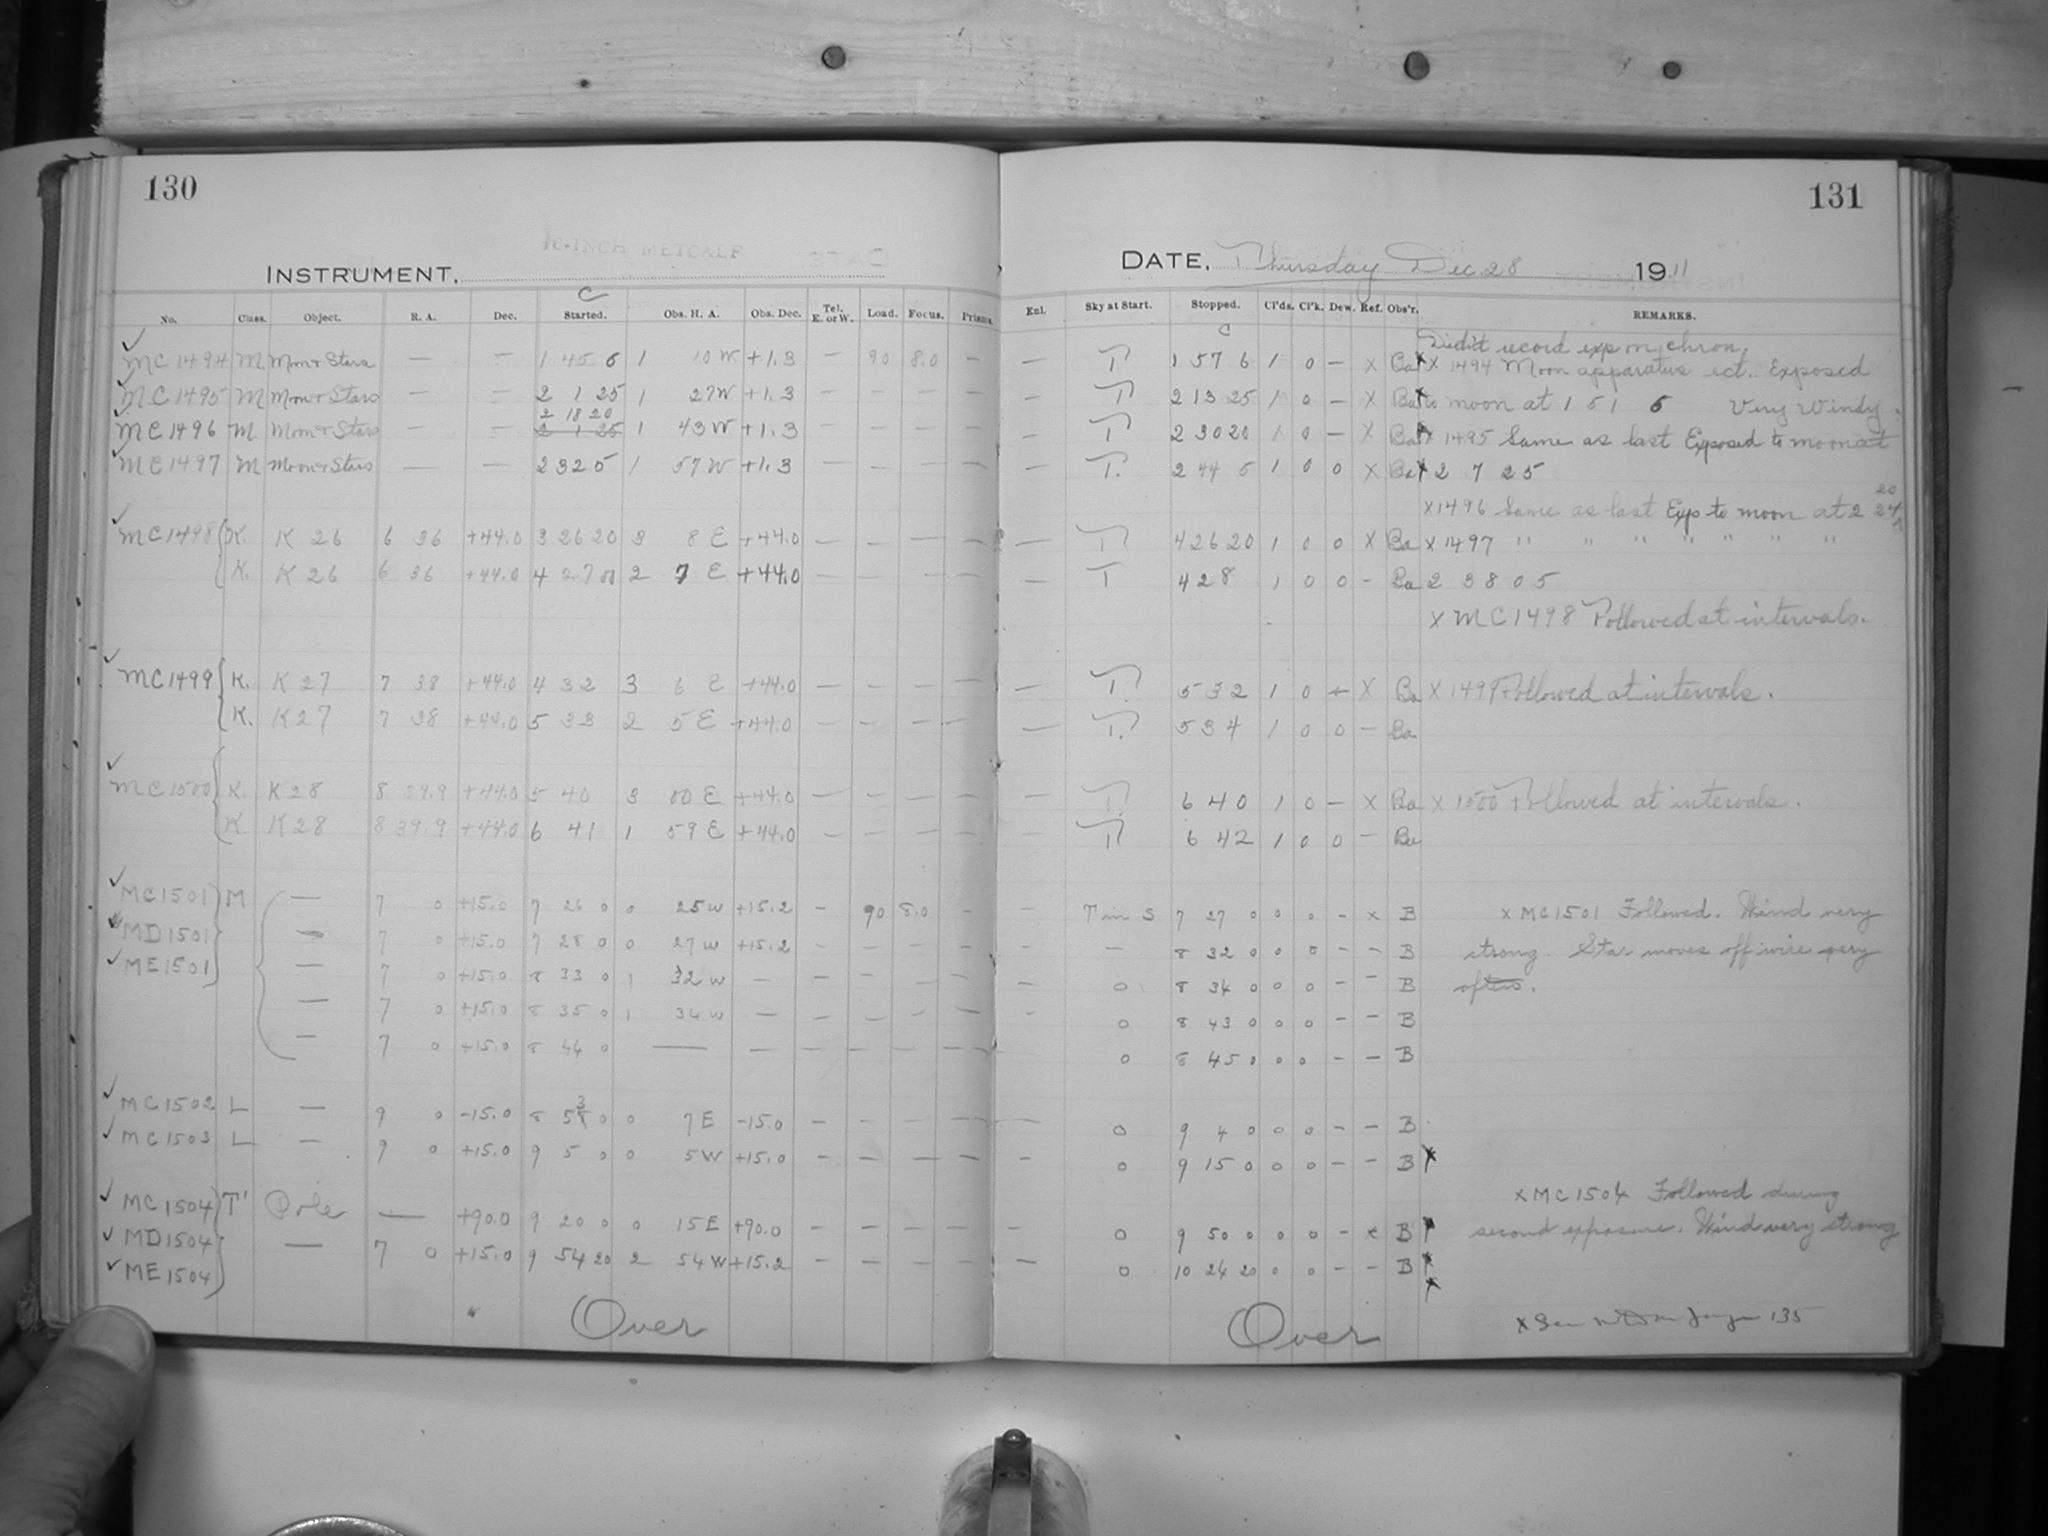 130
16-INCH METCALF
INSTRUMENT,
C
No. Class. Object. R. A. Dec. Started. Obs. H. A. Obs. Dec. Tel. E. or W. Load. Focus. Prisms.
MC 1494 M Moon & Stars — — 1 45 6 1 10 W +1.3 — 90 8.0 —
MC 1495 M Moon & Stars — — 2 1 25 1 27 W +1.3 — — — —
2 18 20
MC 1496 M Moon & Stars — — 2 1 25 1 43 W +1.3 — — — —
MC 1497 M Moon & Stars — — 2 32 5 1 57 W +1.3 — — — —
MC 1498 K. K 26 6 36 +44.0 3 26 20 3 8 E +44.0 — — — —
K. K 26 6 36 +44.0 4 27 00 2 7 E +44.0 — — — —
MC 1499 K. K 27 7 38 +44.0 4 32 3 6 E +44.0 — — — —
K. K 27 7 38 +44.0 5 33 2 5 E +44.0 — — — —
MC 1500 K. K 28 8 39.9 +44.0 5 40 3 00 E +44.0 — — — —
K. K 28 8 39.9 +44.0 6 41 1 59 E +44.0 — — — —
MC 1501 M — 7 0 +15.0 7 26 0 0 25 W +15.2 — 90 8.0 —
MD 1501 — 7 0 +15.0 7 28 0 0 27 W +15.2 — — — —
ME 1501 — 7 0 +15.0 8 33 0 1 32 W — — — — —
— 7 0 +15.0 8 35 0 1 34 W — — — — —
— 7 0 +15.0 8 44 0 — — — — — —
MC 1502 L — 9 0 -15.0 8 53 0 0 7 E -15.0 — — — —
MC 1503 L — 9 0 +15.0 9 5 0 0 5 W +15.0 — — — —
MC 1504 T' Pole — +90.0 9 20 0 0 15 E +90.0 — — — —
MD 1504 — 7 0 +15.0 9 54 20 2 54 W +15.2 — — — —
ME 1504
Over
131
DATE, Thursday Dec. 28 1911
Enl. Sky at Start. Stopped. Cl'ds. Cl'k. Dew. Ref. Obs'r. REMARKS.
C
Didn't record exp on chron.
— T 1 57 6 1 0 — X Ba X 1494 Moon apparatus ect.. Exposed
— T 2 13 25 1 0 — X Ba to moon at 1 51 6 Very Windy.
— T 2 30 20 1 0 — X Ba X 1495 Same as last Exposed to moon at
— T. 2 44 5 1 0 0 X Ba 2 7 25
X 1496 Same as last Exp to moon at 2 24 20
— T 4 26 20 1 0 0 X Ba X 1497 " " " " " " "
— T 4 28 1 0 0 — Ba 2 38 05
X MC 1498 Followed at intervals.
— T. 5 32 1 0 + X Ba X 1499 Followed at intervals.
— T. 5 34 1 0 0 — Ba
— T. 6 40 1 0 — X Ba X 1500 Followed at intervals.
— T 6 42 1 0 0 — Ba
— T in S 7 27 0 0 0 — x B x MC 1501 Followed. Wind very
— — 8 32 0 0 0 — — B strong. Star moves off wire very
— 0 8 34 0 0 0 — — B often.
— 0 8 43 0 0 0 — — B
0 8 45 0 0 0 — — B
— 0 9 4 0 0 0 — — B
— 0 9 15 0 0 0 — — B X
x MC 1504 Followed during
— 0 9 50 0 0 0 — x B x second exposure. Wind very strong
— 0 10 24 20 0 0 — — B x
x
Over
x See 135